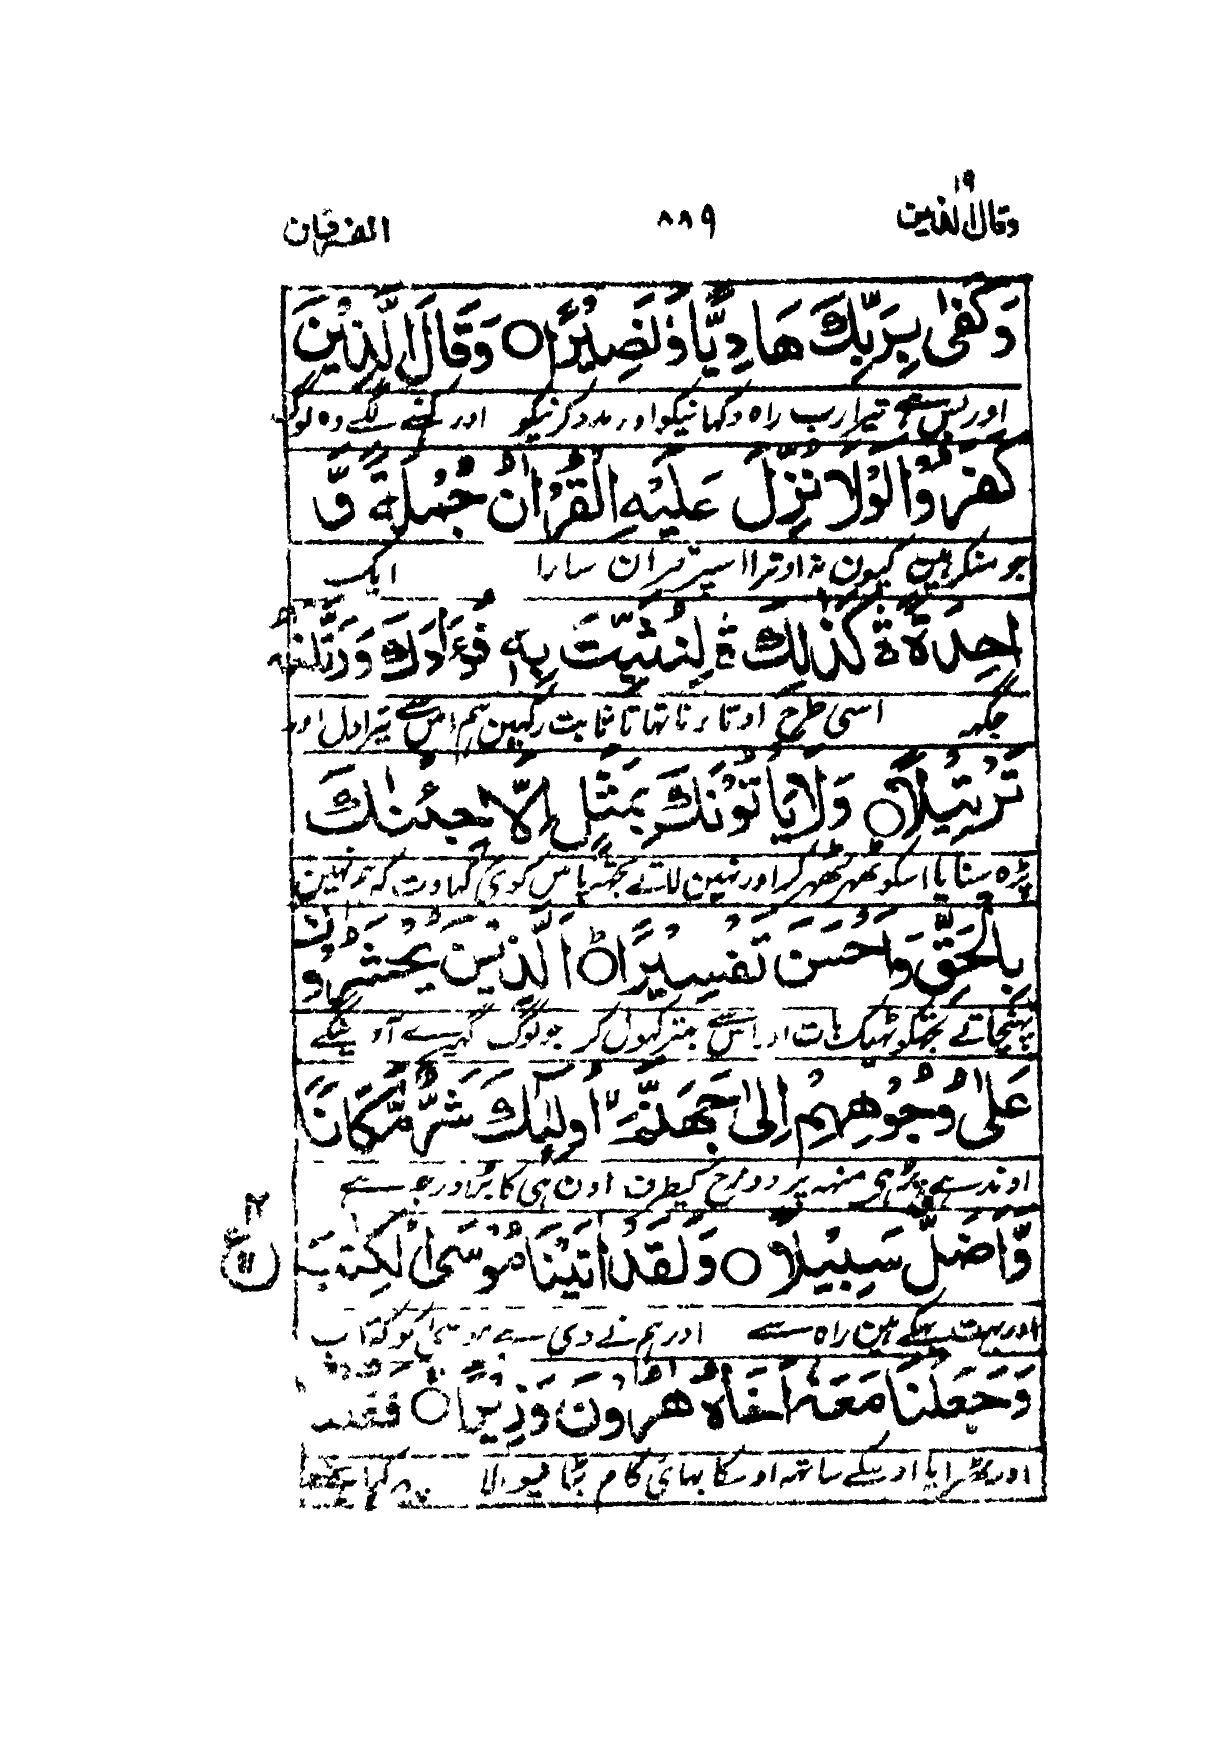 ۱۹
وقال الذین
۸۸۹
الفرقان
وَكَفٰى بِرَبِّكَ هَادِيًّا وَّنَصِيْرًا ○ وَقَالَ الَّذِيْنَ
اور بس ہے تیرا رب راہ دکہانیکو اور مدد کرنیکو اور کہنے لگے وہ لوگ
كَفَرُوْا لَوْلَا نُزِّلَ عَلَيْهِ الْقُرْاٰنُ جُمْلَةً وَّ
جو منکر ہین کیون نہ اوترا اسپر قران سارا ایک
احِدَةً ۛ كَذٰلِكَ ۛ لِنُثَبِّتَ بِهٖ فُؤَادَكَ وَرَتَّلْنٰهُ
جگہہ اسی طرح اوتارنا تہا تا ثابت رکہین ہم اس سے تیرا دل اور
تَرْتِيْلًا ○ وَلَا يَأْتُوْنَكَ بِمَثَلٍ اِلَّا جِئْنٰكَ
پڑہ سنایا اسکو ٹھہر ٹھہر کر اور نہین لاتے تجھہ پاس کوئی کہاوت کہ ہم نہین
بِالْحَقِّ وَاَحْسَنَ تَفْسِيْرًا ○ اَلَّذِيْنَ يُحْشَرُوْنَ
پہنچاتے تجھکو ٹھیک بات اور اس سے بہتر کہول کر جو لوگ گہیرے آوینگے
عَلٰى وُجُوْهِهِمْ اِلٰى جَهَنَّمَ اُولٰٓئِكَ شَرٌّ مَّكَانًا
اوندہے پڑی منہہ پر دوزخ کیطرف اون ہی کا بُرا درجہ ہے
وَّاَضَلُّ سَبِيْلًا ○ وَلَقَدْ اٰتَيْنَا مُوْسَى الْكِتٰبَ
اور بہت بہکے ہین راہ سے اور ہم نے دی ہے موسیٰ کو کتاب
وَجَعَلْنَا مَعَهٗ اَخَاهُ هٰرُوْنَ وَزِيْرًا ○ فَقُلْنَا
اور ٹھرایا اوسکے ساتہہ اوسکا بہائی کام بٹانیوالا پہر کہا ہمنے
ع